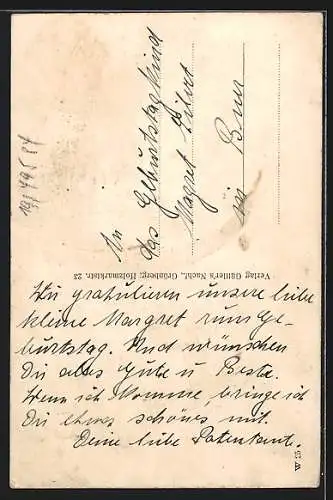 An
das Geburtstagkind
Margret
in Buer
Verlag Güttler's Nachf., Grünberg, Holzmarktstr. 25
Wir gratulieren unsere liebe
kleine Margret zum Ge-
burtstag. Und wünschen
Dir alles Gute u Beste.
Wenn ich komme, bringe ich
Dir etwas schönes mit.
Deine liebe Patentant.
W 25